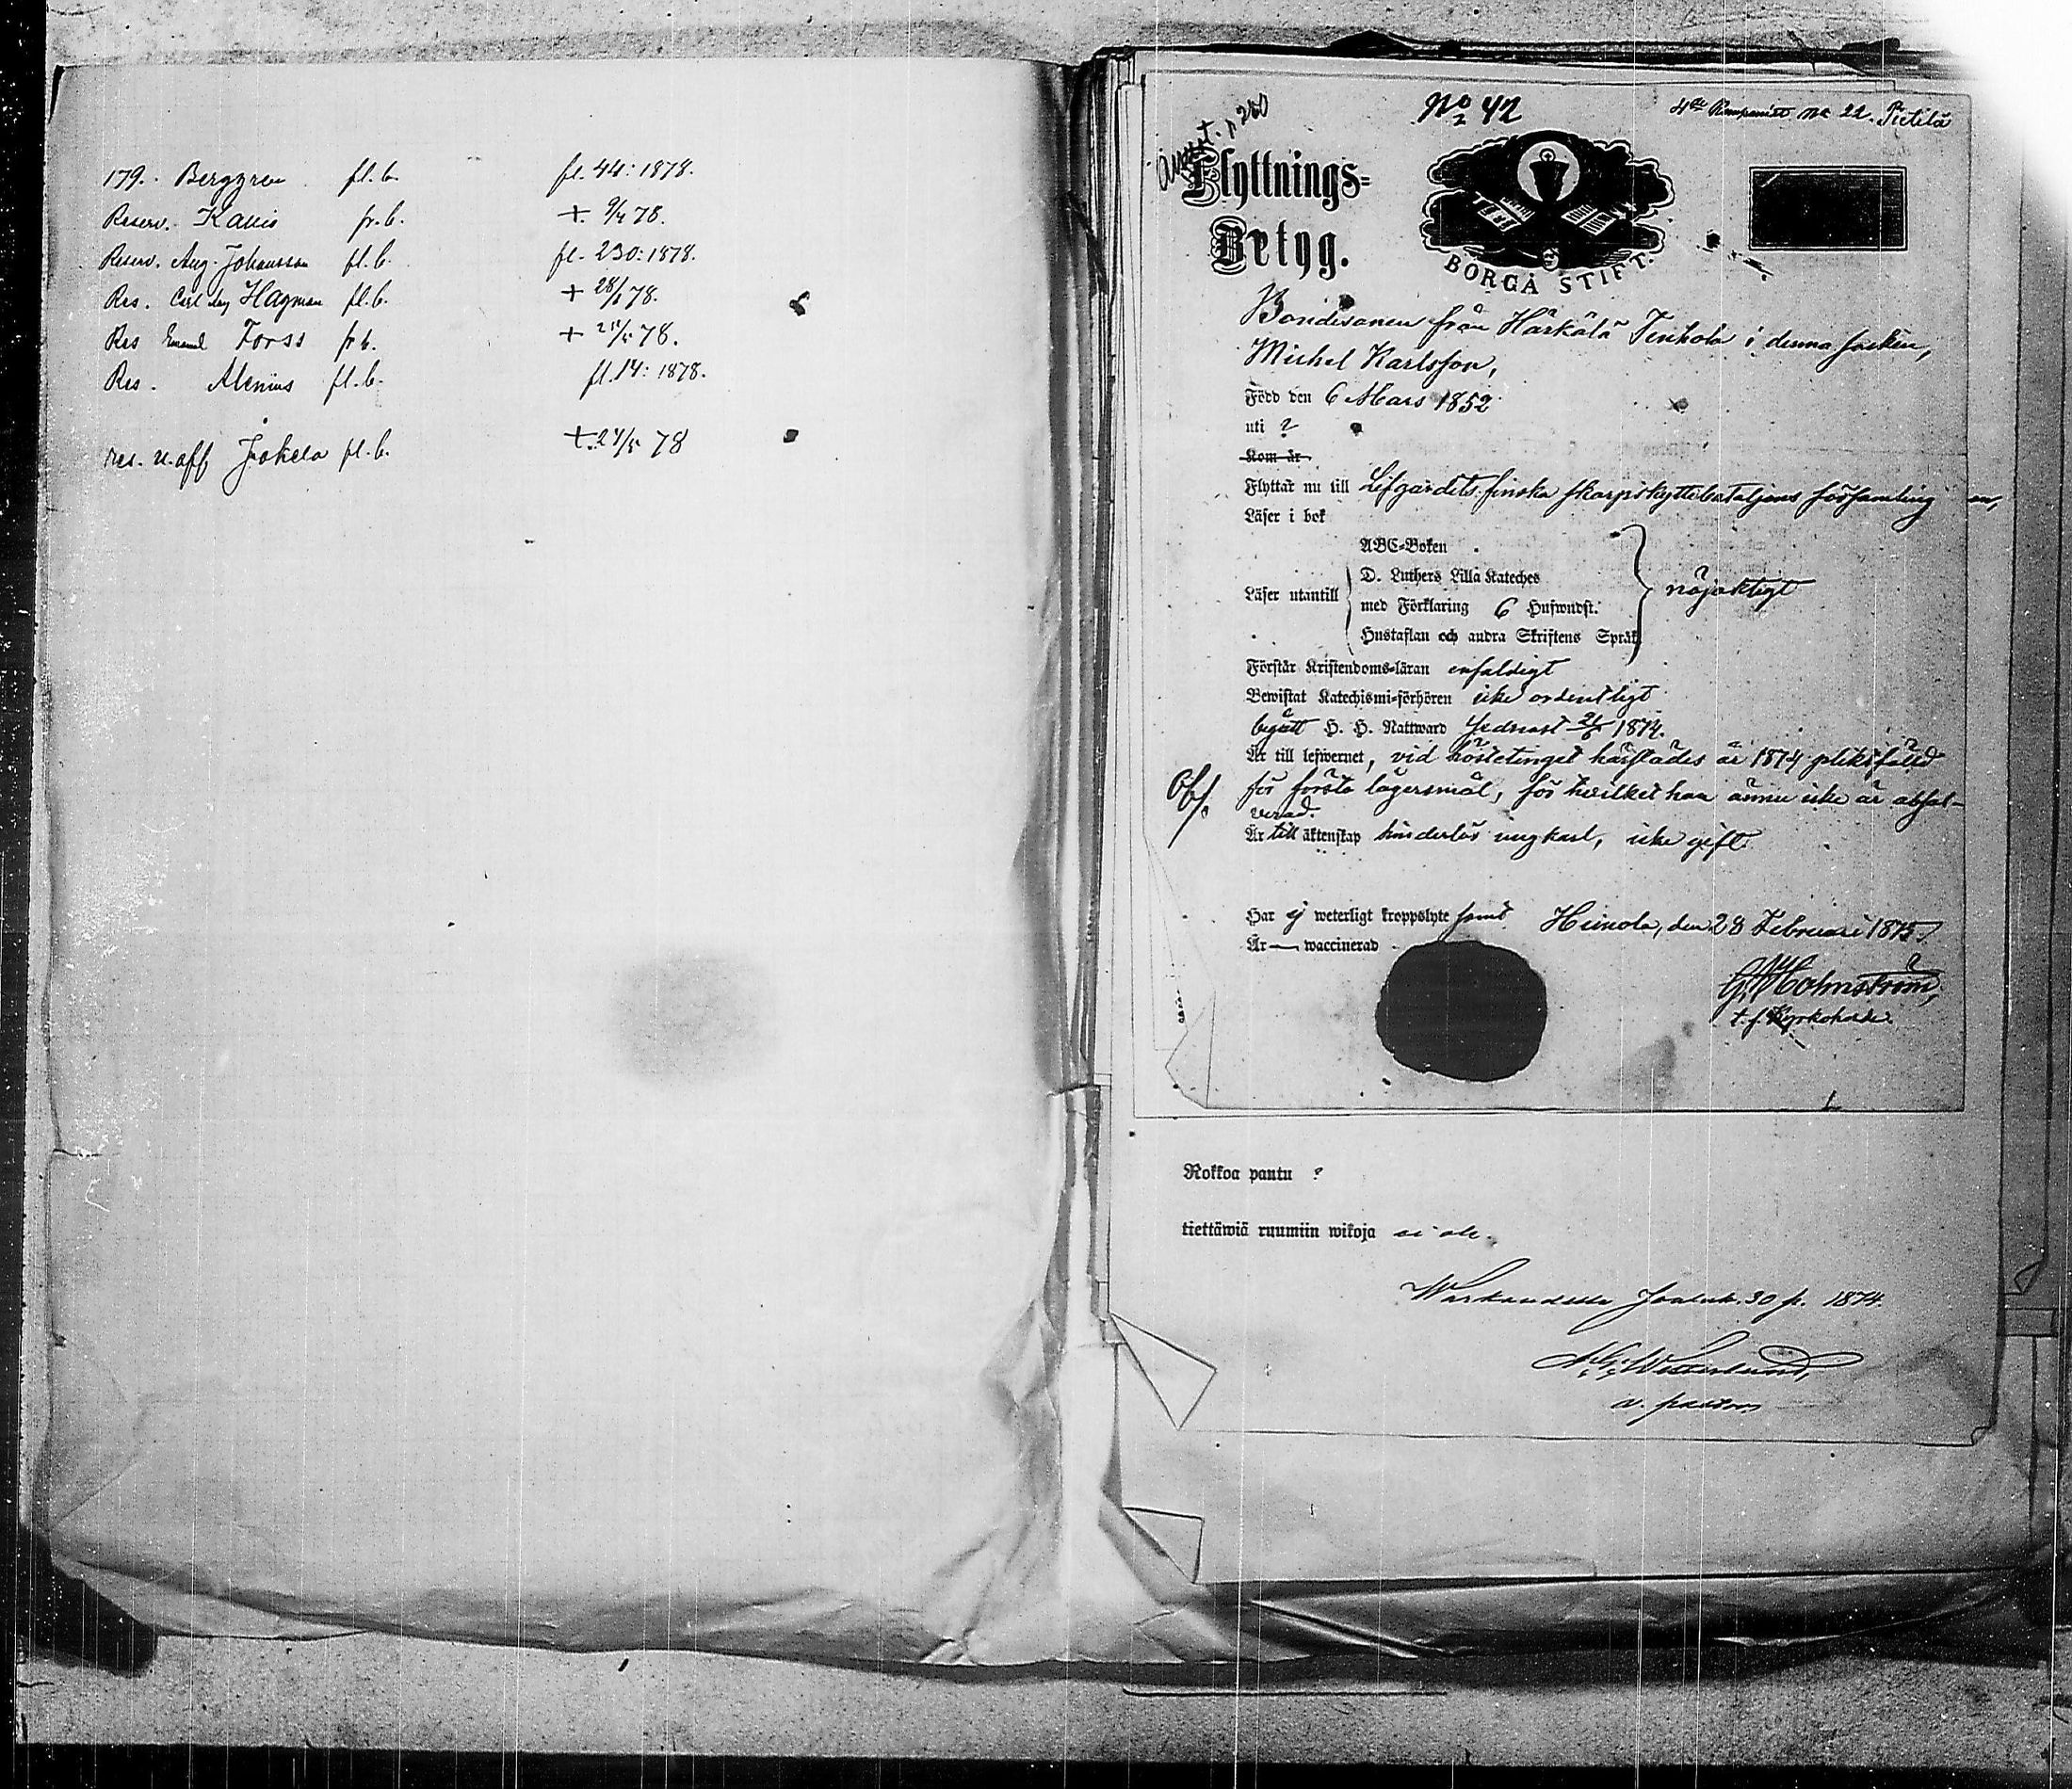 179. Berggren fl. b. fl. 44: 1878.
Reserv. Kallis fr. b. + 9/4 78.
Reserv. Aug. Johansson fl. b. fl. 230: 1878.
Res. Carl Aug Hagman fl. b. + 28/1 78.
Res Emanuel Forss fr b. + 78.
Res. Alenius fl. b. fl. 14: 1878.
res. u. off Jokela fl. b. + 27/5 78
No 42
4de Kompaniet No 22. Pietilä
p 260
Flyttnings=
Betyg.
BORGÅ STIFT.
Bondesonen från Härkälä i denna socken,
Michel Karlsson,
Född den 6 Mars 1852
uti ?
Kom år
Flyttar nu till Lifgardets finska skarpskyttebataljons församling
Läser i bok
ABC=Boken
D. Luthers Lilla Kateches
Läser utantill
med Förklaring 6 Hufwudst.
nöjaktigt
Hustaflan och andra Skriftens Språk
Förstår Kristendoms=läran enfaldigt
Bewistat Katechismi=förhören icke ordentligt
begått H. H. Nattward sednast 1874.
Är till lefwernet, vid hösttinget härstädes år 1874 pliktfälld
Obs.
för första lägersmål, för hvilket han ännu icke är absol-
verad.
Är till äktenskap hinderlös ungkarl, icke gift.
Har ej weterligt kroppslyte samt
Heinola, den 28 Februari 1875.
Är — waccinerad
Holmström,
t. f. Kyrkoherde
Rokkoa pantu ?
tiettäwiä ruumiin wikoja ei ole.
Warkaudessa Jouluk. 30 p. 1874.
Westerlund,
v. pastor